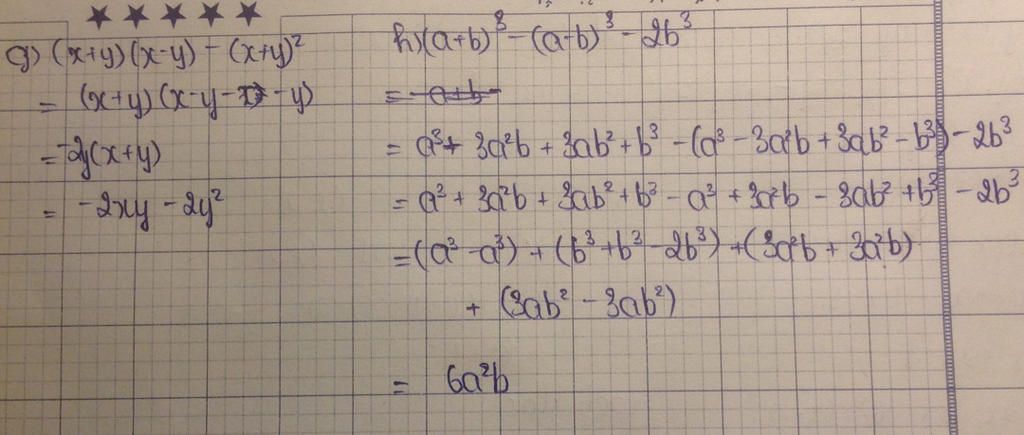 g) (x+y)(x-y) - (x+y)²
= (x+y)(x-y-x-y)
= -2y(x+y)
= -2xy - 2y²
h) (a+b)³ - (a-b)³ - 2b³
= a+b
= a³ + 3a²b + 3ab² + b³ - (a³ - 3a²b + 3ab² - b³) - 2b³
= a³ + 3a²b + 3ab² + b³ - a³ + 3a²b - 3ab² + b³ - 2b³
= (a³ - a³) + (b³ + b³ - 2b³) + (3a²b + 3a²b)
+ (3ab² - 3ab²)
= 6a²b